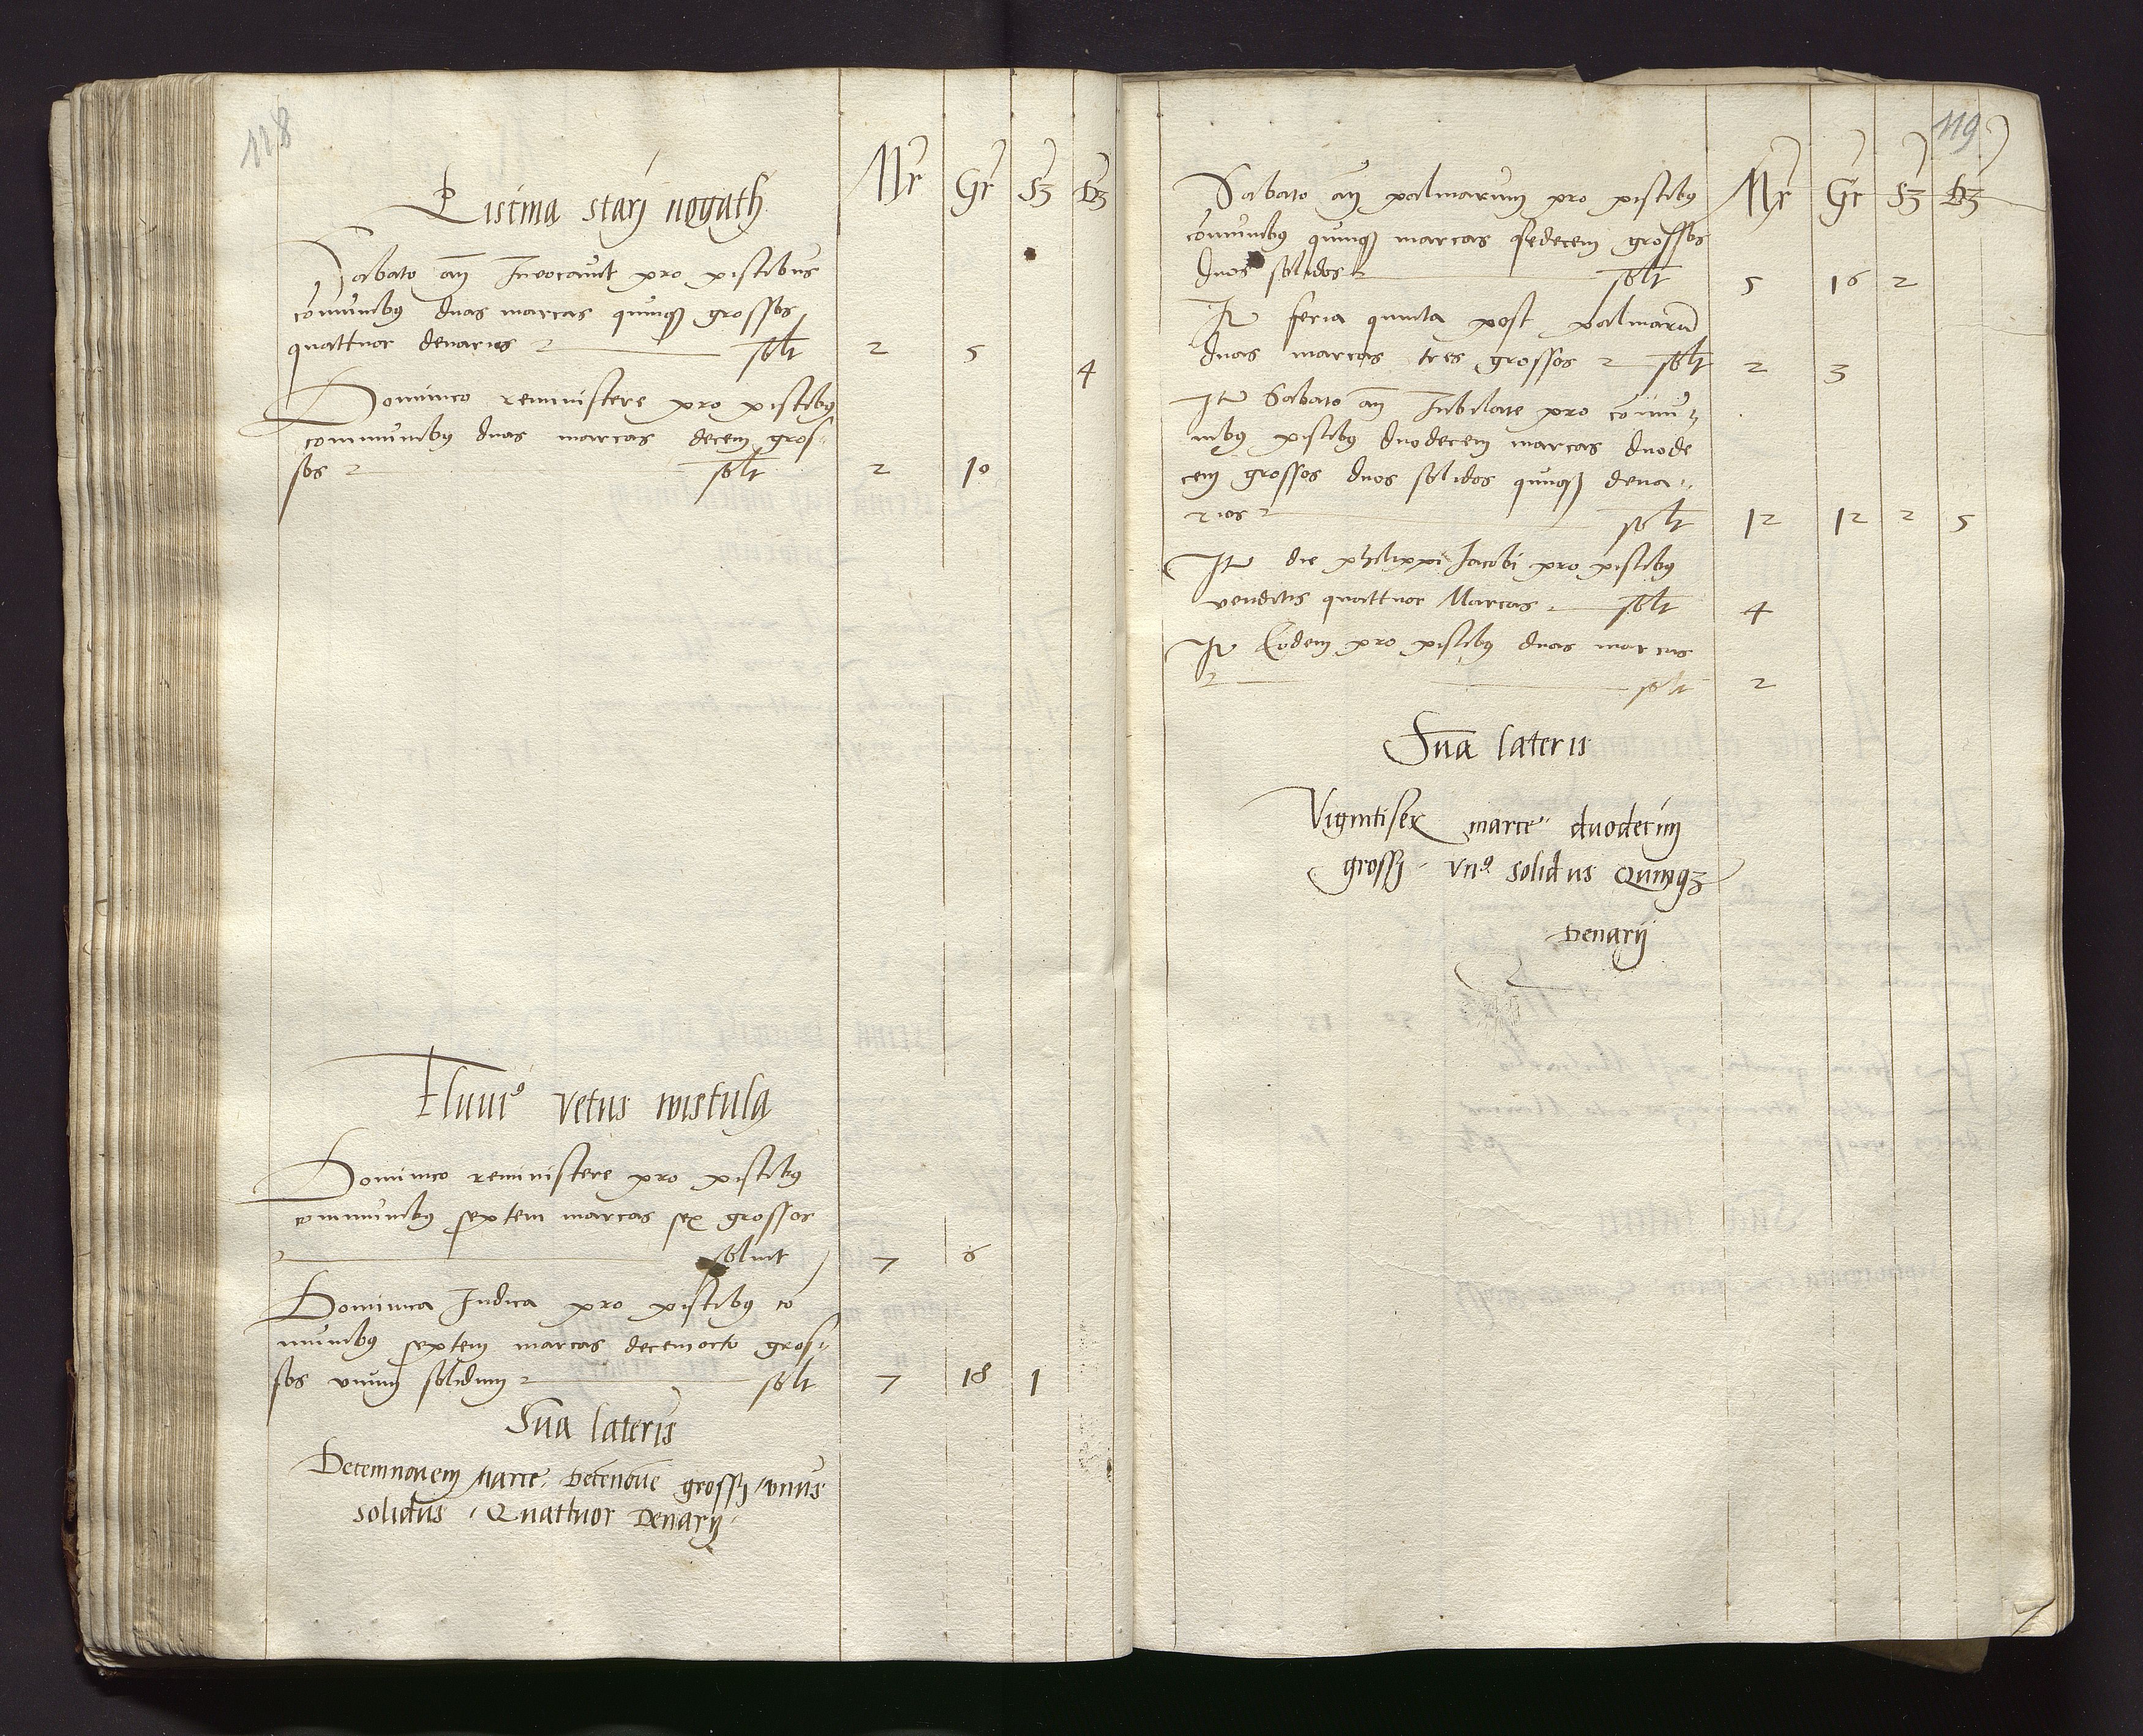 118
Mr Gr Sz Dz
Piscina starj nogath
Sabato añ Inuocauit pro piscibus
cõmunibꝰ duas marcas quinqꝫ grossos
quattuor denarios solt 2 5 4
Dominico reministere pro piscibꝰ
communibꝰ duas marcas decem gros-
sos solt 2 10
Fluuiꝰ vetus wistula
Dominico reministere pro piscibꝰ
communibꝰ septem marcas sex grossos
soluit 7 6
Dominica Iudica pro piscibꝰ co
munibꝰ septem marcas decemocto gros-
sos vnum solidum solt 7 18 1
Sūa lateris
Decemnouem marce. Decenoūe grossj / vnus
solidus / Quattuor Denarij
119
Mr Gr Sz Dz
Sabato añ palmarum pro piscibꝰ
cõmunibꝰ quinqꝫ marcas sedecem grossos
duos solidos solt 5 16 2
It feria quinta post palmarū
duas marcas tres grossos solt 2 3
Itē Sabato añ Iubilate pro comu-
nibꝰ piscibꝰ duodecem marcas duode
cem grossos duos solidos quinqꝫ dena-
rios solt 12 12 2 5
Itē die philippi Iacobi pro piscibꝰ
venditis quattuor Marcas solt 4
It Eodem pro piscibꝰ duas marcas
solt 2
Sūa lateris
Vigintisex marce duodecim
grossj vnꝰ solidus Quinqꝫ
Denarij